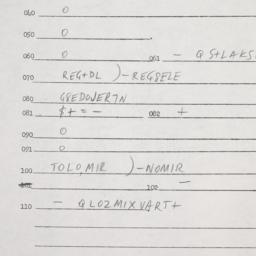 060 0
050 0
060 0 061 - QS+LAKS
070 REG+DL )-REGSELE
080 G8EDOVER7N
081 $+=- 082 +
090 0
091 0
100 TOLO,MIR )-NOMIR
102 -
110 - QLOZMIXVART+